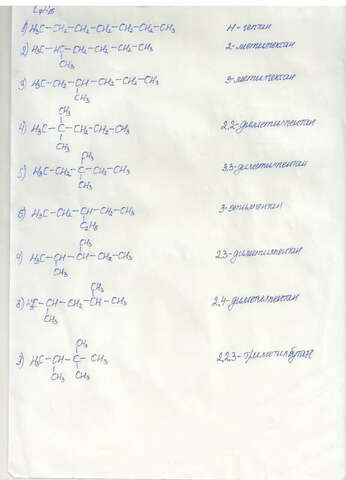 C₇H₁₆
1) H₃C-CH₂-CH₂-CH₂-CH₂-CH₂-CH₃ н-гептан
2) H₃C-HC-CH₂-CH₂-CH₂-CH₃ 2-метилгексан
CH₃
3) H₃C-CH₂-CH-CH₂-CH₂-CH₃ 3-метилгексан
CH₃
CH₃
4) H₃C-C-CH₂-CH₂-CH₃ 2,2-диметилпентан
CH₃
CH₃
5) H₃C-CH₂-C-CH₂-CH₃ 3,3-диметилпентан
CH₃
6) H₃C-CH₂-CH-CH₂-CH₃ 3-этилпентан
C₂H₅
CH₃
7) H₃C-CH-CH-CH₂-CH₃ 2,3-диметилпентан
CH₃
CH₃
8) H₃C-CH-CH₂-CH-CH₃ 2,4-диметилпентан
CH₃
CH₃
9) H₃C-CH-C-CH₃ 2,2,3-триметилбутан
CH₃ CH₃